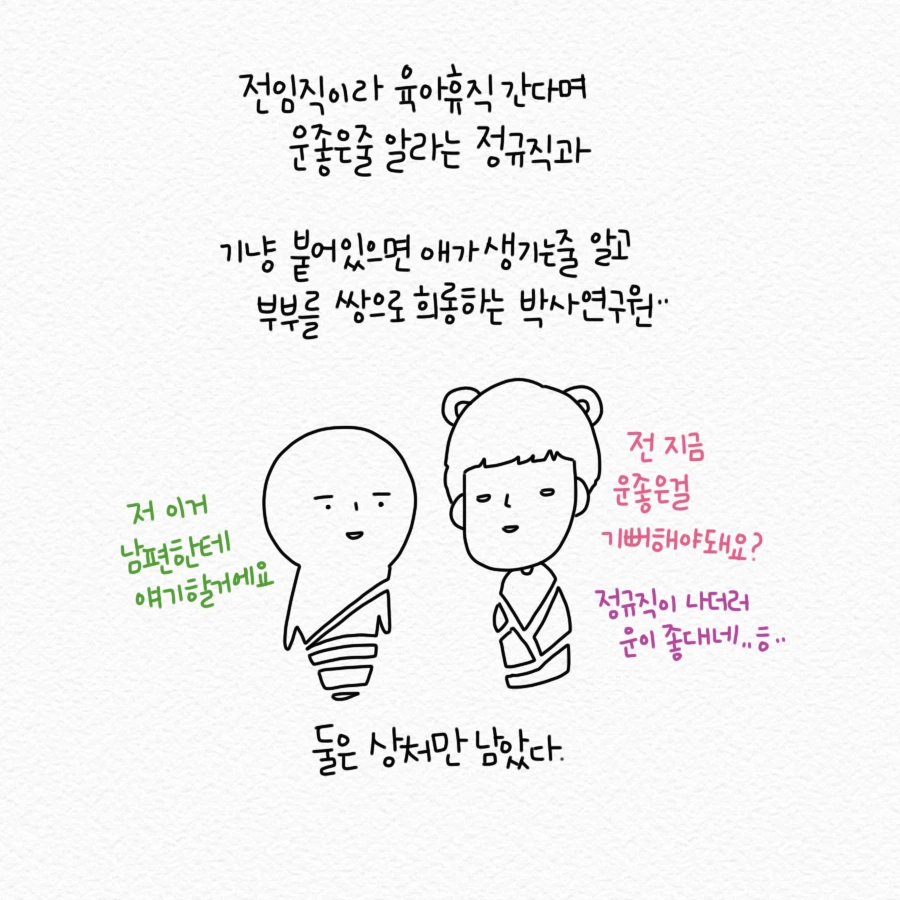 전임직이라 육아휴직 간다며
운좋은줄 알라는 정규직과
기냥 붙어있으면 애가 생기는줄 알고
부부를 쌍으로 희롱하는 박사연구원..
저 이거
남편한테
얘기할거에요
전 지금
운좋은걸
기뻐해야돼요?
정규직이 나더러
운이 좋대네..ㅎ..
둘은 상처만 남았다.